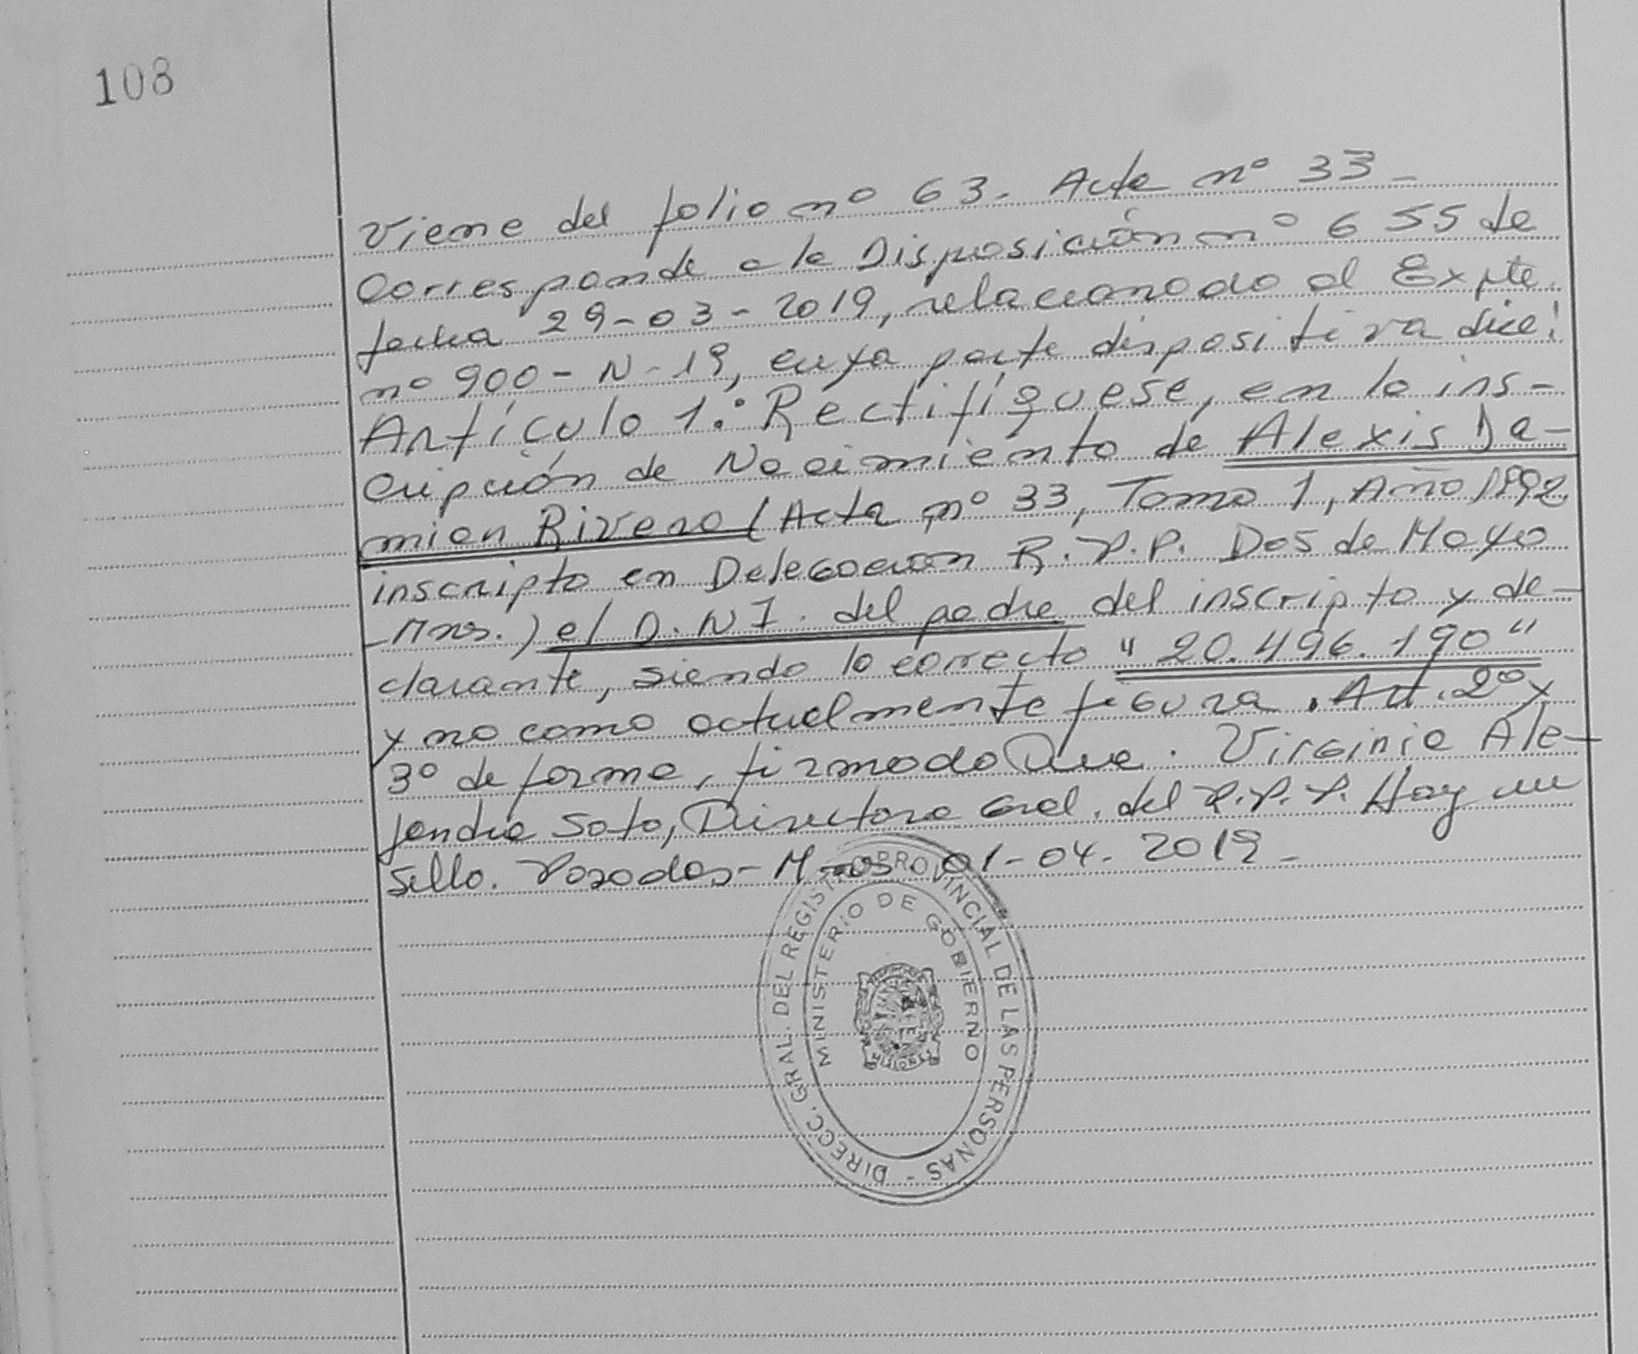 108
Viene del folio nº 63. Acta nº 33 -
Corresponde a la Disposición nº 655 de
fecha 29-03-2019, relacionado al Expte.
nº 900-N-19, cuya parte dispositiva dice:
Artículo 1º: Rectifíquese, en la ins-
cripción de Nacimiento de Alexis Da-
mian Rivero (Acta nº 33, Tomo 1, Año 1992
inscripto en Delegación R.P.P. Dos de Mayo
-Mnes.) el D.N.I. del padre del inscripto y de-
clarante, siendo lo correcto "20.496.190"
y no como actualmente figura. Art. 2º y
3º de forma, firmado Dra. Virginia Ale-
jandra Soto, Directora Gral. del R.P.P. Hay un
sello. Posadas - Mnes. 01-04-2019 -
DIRECC. GRAL. DEL REGISTRO PROVINCIAL DE LAS PERSONAS -
MINISTERIO DE GOBIERNO
MISIONES